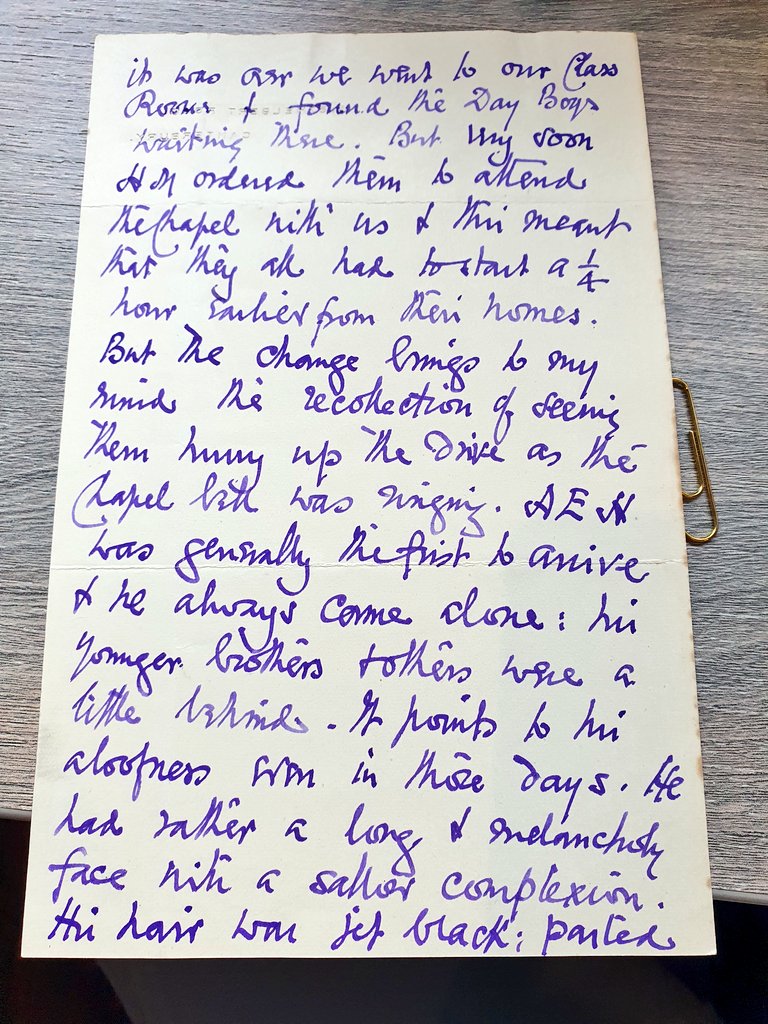 it was over we went to our Class
Rooms & found the Day Boys
waiting there. But very soon
HM ordered them to attend
the Chapel with us & this meant
that they all had to start a 1/4
hour earlier from their homes.
But the change brings to my
mind the recollection of seeing
them hurry up the Drive as the
Chapel bell was ringing. AEH
was generally the first to arrive
& he always came alone: his
younger brothers & others were a
little behind. It points to his
aloofness even in those days. He
had rather a long & melancholy
face with a sallow complexion.
His hair was jet black: parted